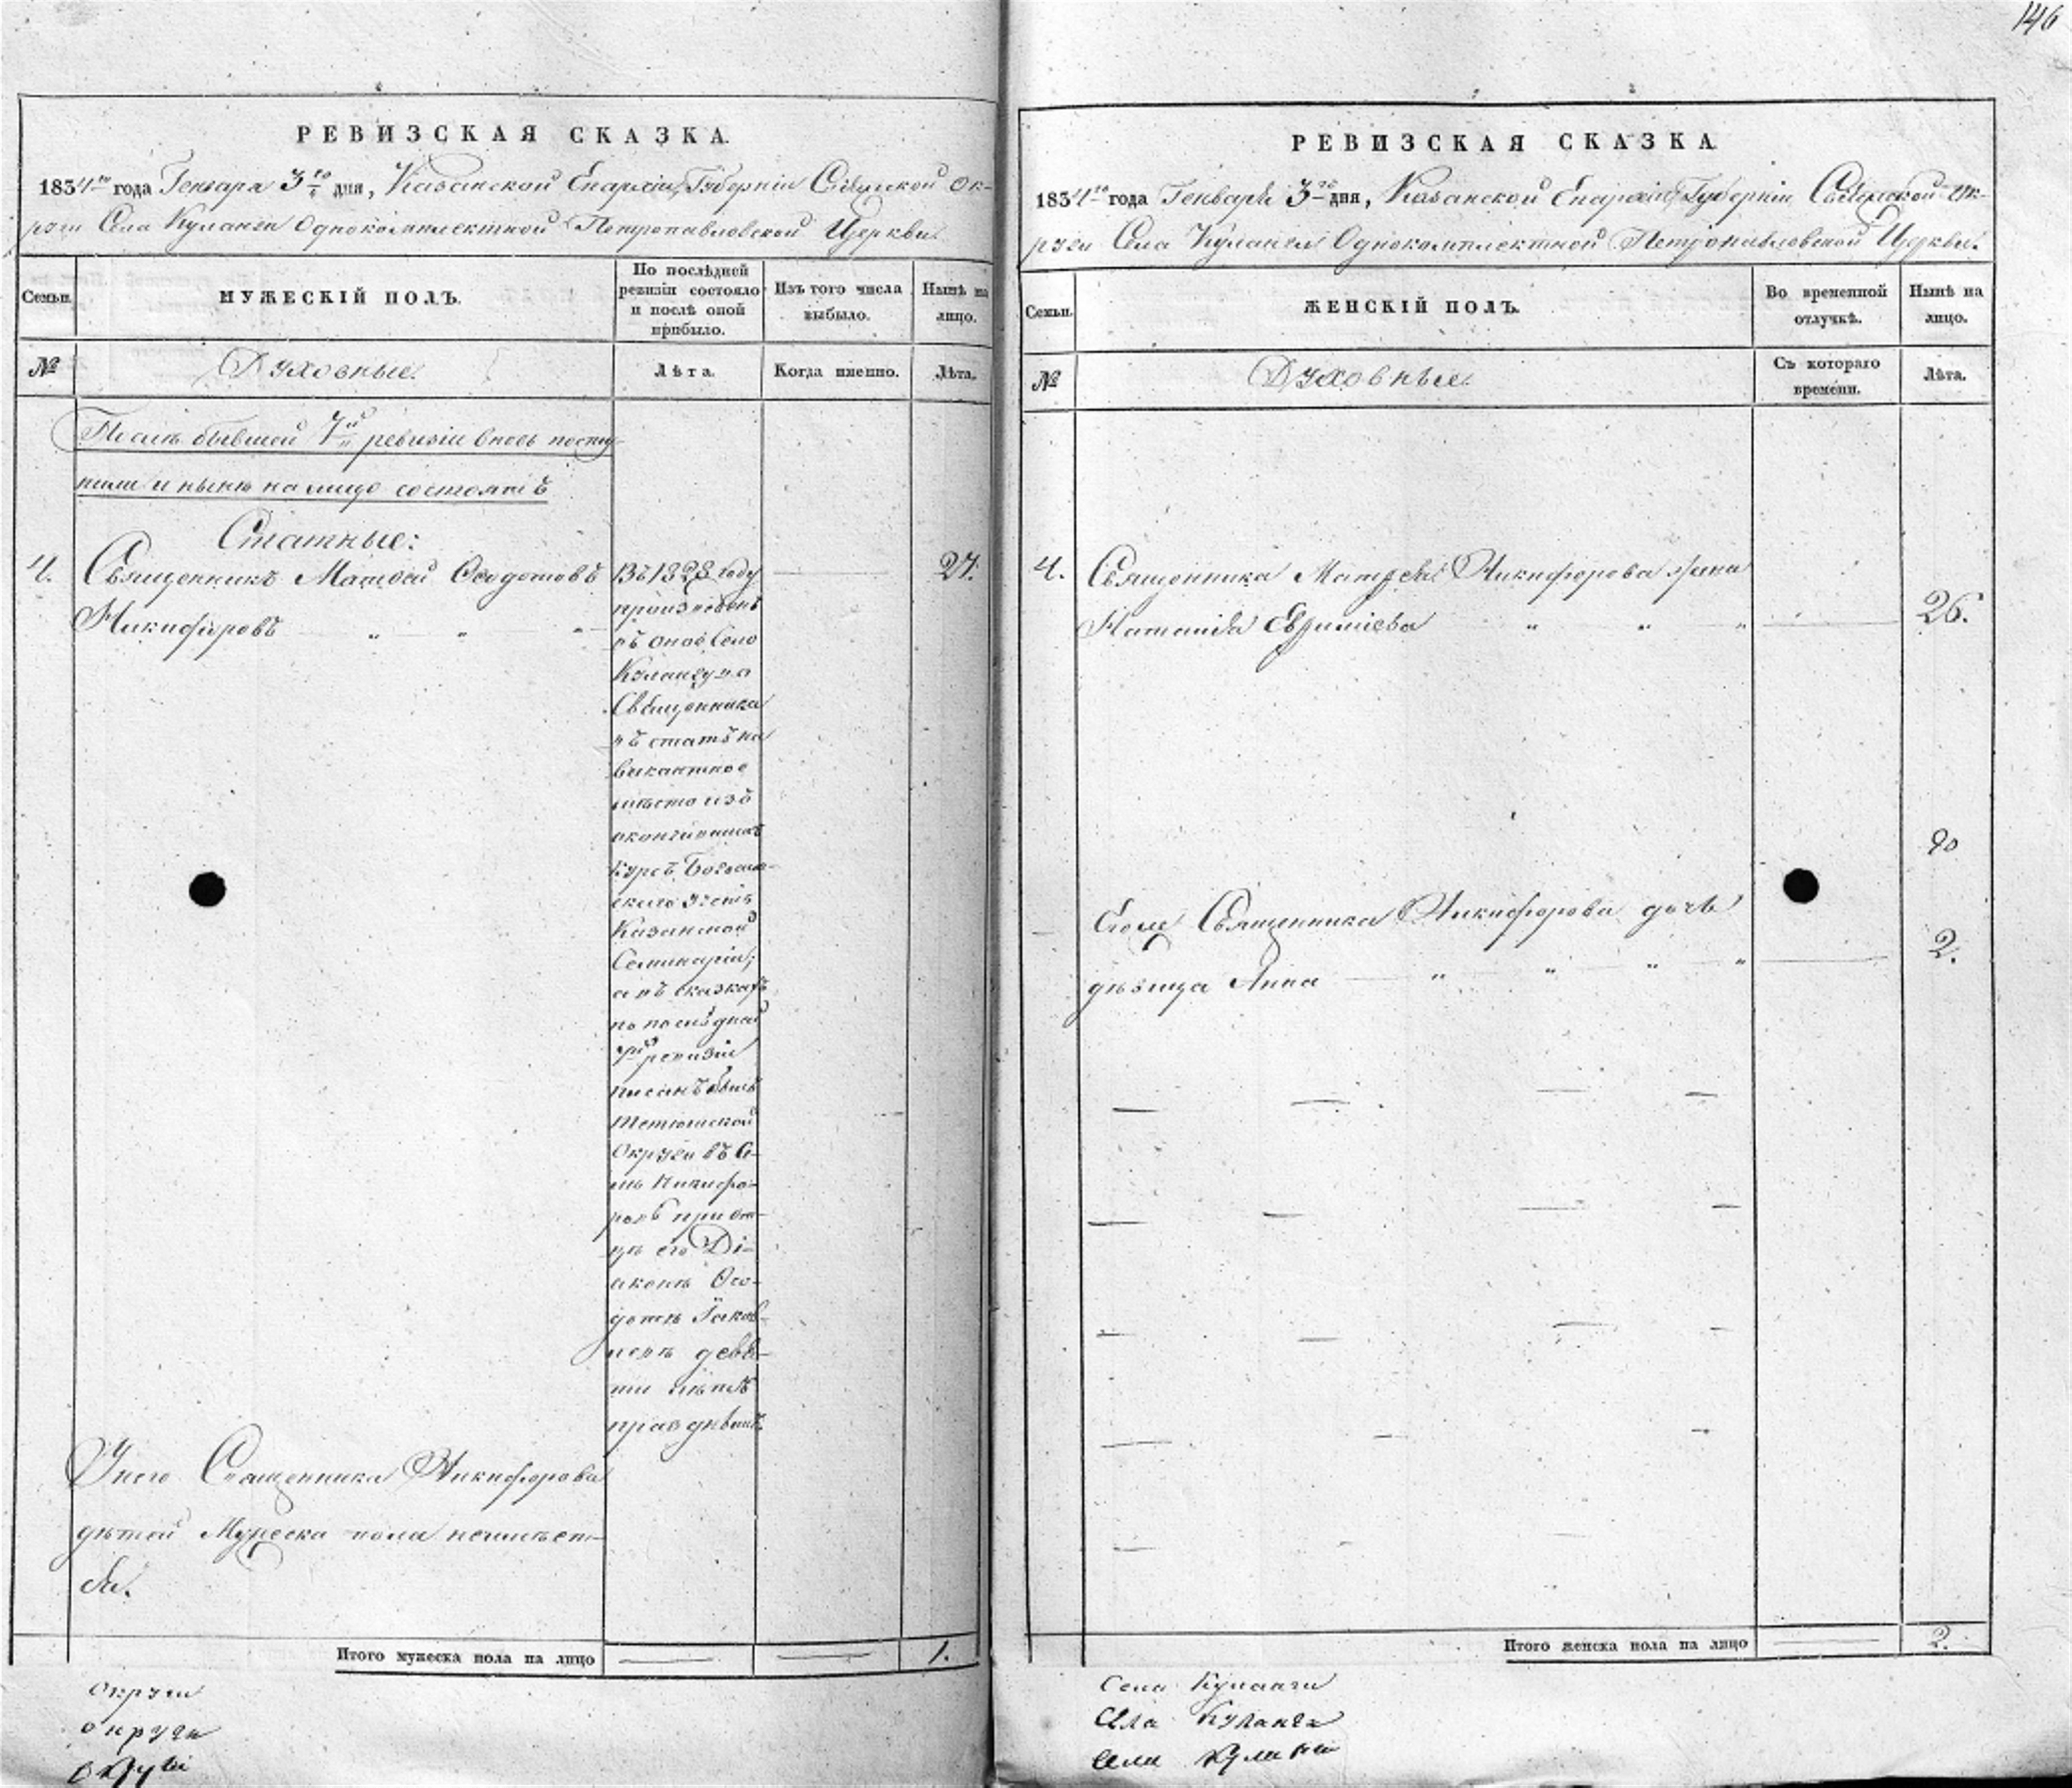 146
РЕВИЗСКАЯ СКАЗКА.
1834го года Генваря 3го дня, Казанской Епархіи, Губерніи Свіяжской Ок-
руги Села Куланги Однокомплектной Петропавловской Церкви.
Семьи.
МУЖЕСКІЙ ПОЛЪ.
По послѣдней ревизіи состояло и послѣ оной прибыло.
Изъ того числа выбыло.
Нынѣ на лицо.
№
Духовные.
Лѣта.
Когда именно.
Лѣта.
Послѣ бывшей 7й ревизіи вновь посту-
пили и нынѣ на лицо состоятъ
Статные:
4.
Священникъ Матвей Ѳеодотовъ
Никифоровъ
27.
Въ 1828 году
произведенъ
въ оное Село
Кулангу во
Священника
въ статъ на
вакантное
мѣсто изъ
окончившихъ
курсъ Богослов-
скаго ученія
Казанской
Семинаріи;
а въ сказкахъ
по последней
7й ревизіи
писанъ былъ
Тетюшской
Округи въ Се-
лѣ Никифо-
ровѣ при от-
цѣ его Ді-
аконѣ Ѳео-
дотѣ Іаков-
левѣ девя-
ти лѣтъ
празднымъ.
У него Священника Никифорова
дѣтей Мужеска пола неимѣет-
ся.
Итого мужеска пола на лицо
1.
Округи
округи
Округи
РЕВИЗСКАЯ СКАЗКА
1834го года Генваря 3го дня, Казанской Епархіи Губерніи Свіяжской Ок-
руги Села Куланги Однокомплектной Петропавловской Церкви.
Семьи.
ЖЕНСКІЙ ПОЛЪ.
Во временной отлучкѣ.
Нынѣ на лицо.
№
Духовные.
Съ котораго времени.
Лѣта.
4.
Священника Матвея Никифорова жена
Наталья Евфиміева
26.
Его же Священника Никифорова дочь
дѣвица Анна
2.
Итого женска пола на лицо
2.
Села Куланги
Села Куланги
Села Куланги